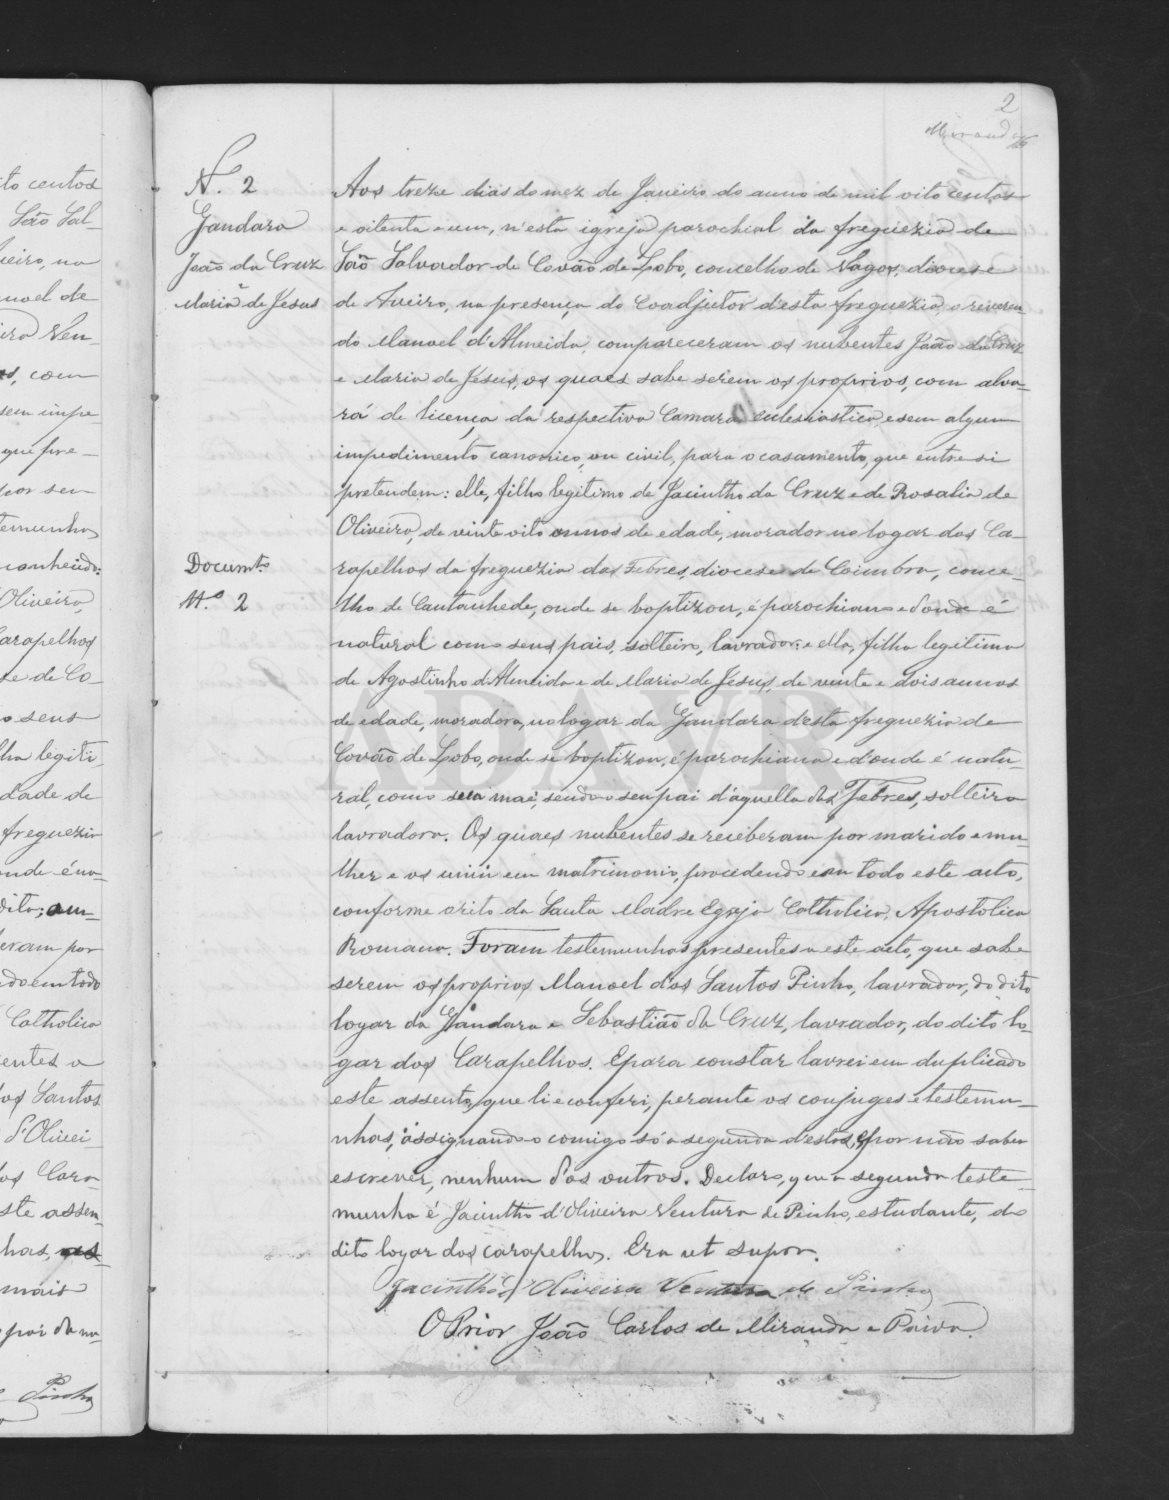 ito centos
São Sal-
eiro, na
noel de
Ven-
com
sem impe
que pre-
por seu
temunhas
conhecido:
Oliveira,
Carapelhos
se de Co-
seus
lha legiti
dade de
freguezia
onde é na-
dito; am-
eram por
ndo em todo
Catholica
entes a
dos Santos
d'Olivei-
dos Cara-
ste assen-
has,
mais
Pinho
2
Miranda
N. 2
Gandara
João da Cruz
Maria de Jesus
Documt.
N.º 2
Aos treze dias do mez de Janeiro do anno de mil oito centos
e oitenta e um, n'esta igreja parochial da freguezia de
São Salvador de Covão de Lobo, concelho de Vagos, diocese
de Aveiro, na presença do Coadjutor d'esta freguezia, o reveren-
do Manoel d'Almeida, compareceram os nubentes João da Cruz
e Maria de Jesus, os quaes sabe serem os proprios, com alva-
rá de licença da respectiva Camara ecclesiastica, e sem algum
impedimento canonico, ou civil, para o casamento, que entre si
pretendem: elle, filho legitimo de Jacintho da Cruz e de Rosalia de
Oliveira, de vinte oito annos de edade, morador no logar dos Ca-
rapelhos da freguezia das Febres, diocese de Coimbra, conce-
lho de Cantanhede, onde se baptizou, é parochiano e donde é
natural como seus pais, solteiro, lavrador: e ella, filha legitima
de Agostinho d'Almeida e de Maria de Jesus, de vinte e dois annos
de edade, moradora, no logar da Gandara d'esta freguezia de
Covão de Lobo, onde se baptizou, é parochiana e d'onde é natu-
ral, como sua mae, sendo o seu pai d'aquella das Febres, solteira
lavradora. Os quaes nubentes se receberam por marido e mu-
lher e os uniu em matrimonio, procedendo em todo este acto,
conforme o rito da Santa Madre Egreja Catholica, Apostolica
Romana. Foram testemunhas presentes a este acto, que sabe
serem os proprios Manoel dos Santos Pinho, lavrador, do dito
logar da Gandara e Sebastião da Cruz, lavrador, do dito lo-
gar dos Carapelhos. E para constar lavrei em duplicado
este assento, que li e conferi, perante os conjuges e testemu-
nhas, assignando-o comigo só a segunda d'estas, por não saber
escrever, nenhum dos outros. Declaro, que a segunda teste-
munha é Jacintho d'Oliveira Ventura de Pinho, estudante, do
dito logar dos Carapelhos. Era ut supra.
Jacintho d'Oliveira Ventura de Pinho
O Prior João Carlos de Miranda e Paiva.
ADAVR